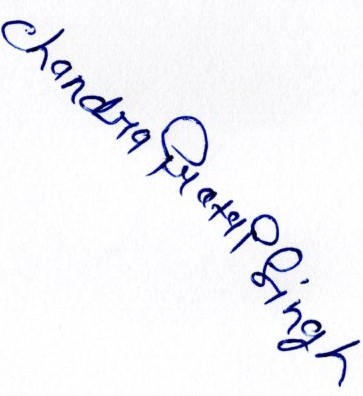 Chandra Pratap Singh